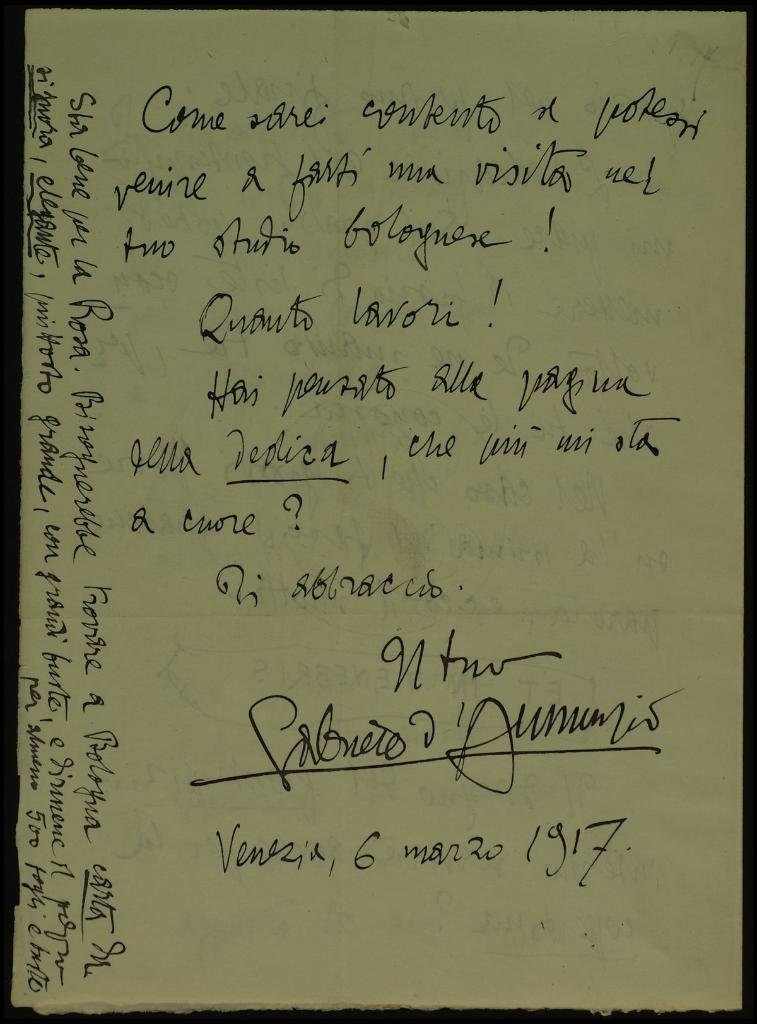 Come sarei contento se potessi
venire a farti una visita nel
tuo studio bolognese!
Quanto lavori!
Hai pensato alla pagina
della dedica, che più mi sta
a cuore?
Ti abbraccio.
Il tuo
Gabriele d'Annunzio
Venezia, 6 marzo 1917.
Sta bene per la Rosa. Bisognerebbe trovare a Bologna carta da
signora, elegante, piuttosto grande, con grandi buste, e dirmene il prezzo
per almeno 500 fogli e buste